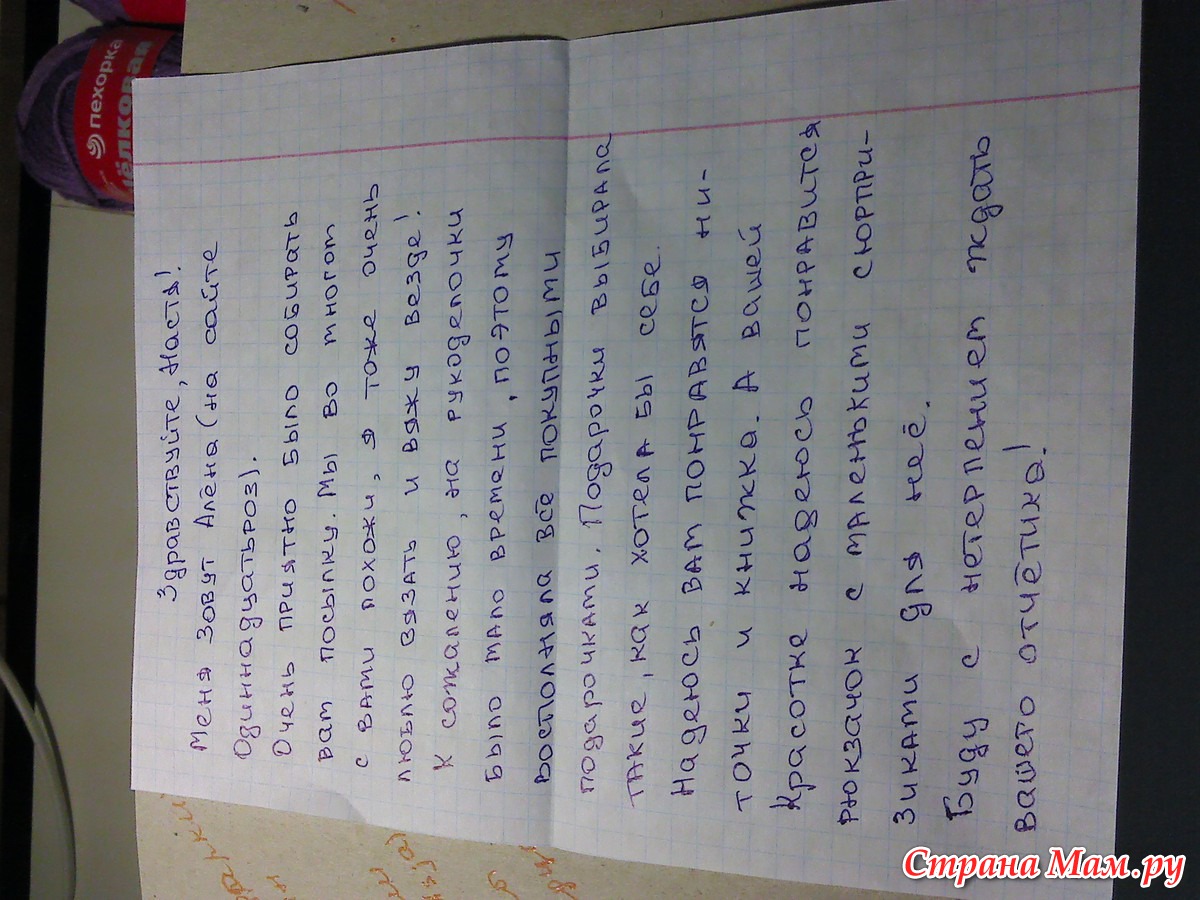 Здравствуйте, Настя!
Меня зовут Алёна (на сайте
Одиннадцатьроз).
Очень приятно было собирать
вам посылку. Мы во многом
с вами похожи, я тоже очень
люблю вязать и вяжу везде!
К сожалению, на рукоделочки
было мало времени, поэтому
восполняла всё покупными
подарочками. Подарочки выбирала
такие, как хотела бы себе.
Надеюсь вам понравятся ни-
точки и книжка. А вашей
Красотке надеюсь понравится
рюкзачок с маленькими сюрпри-
зиками для неё.
Буду с нетерпением ждать
вашего отчётика!
пехорка
Страна Мам.ру